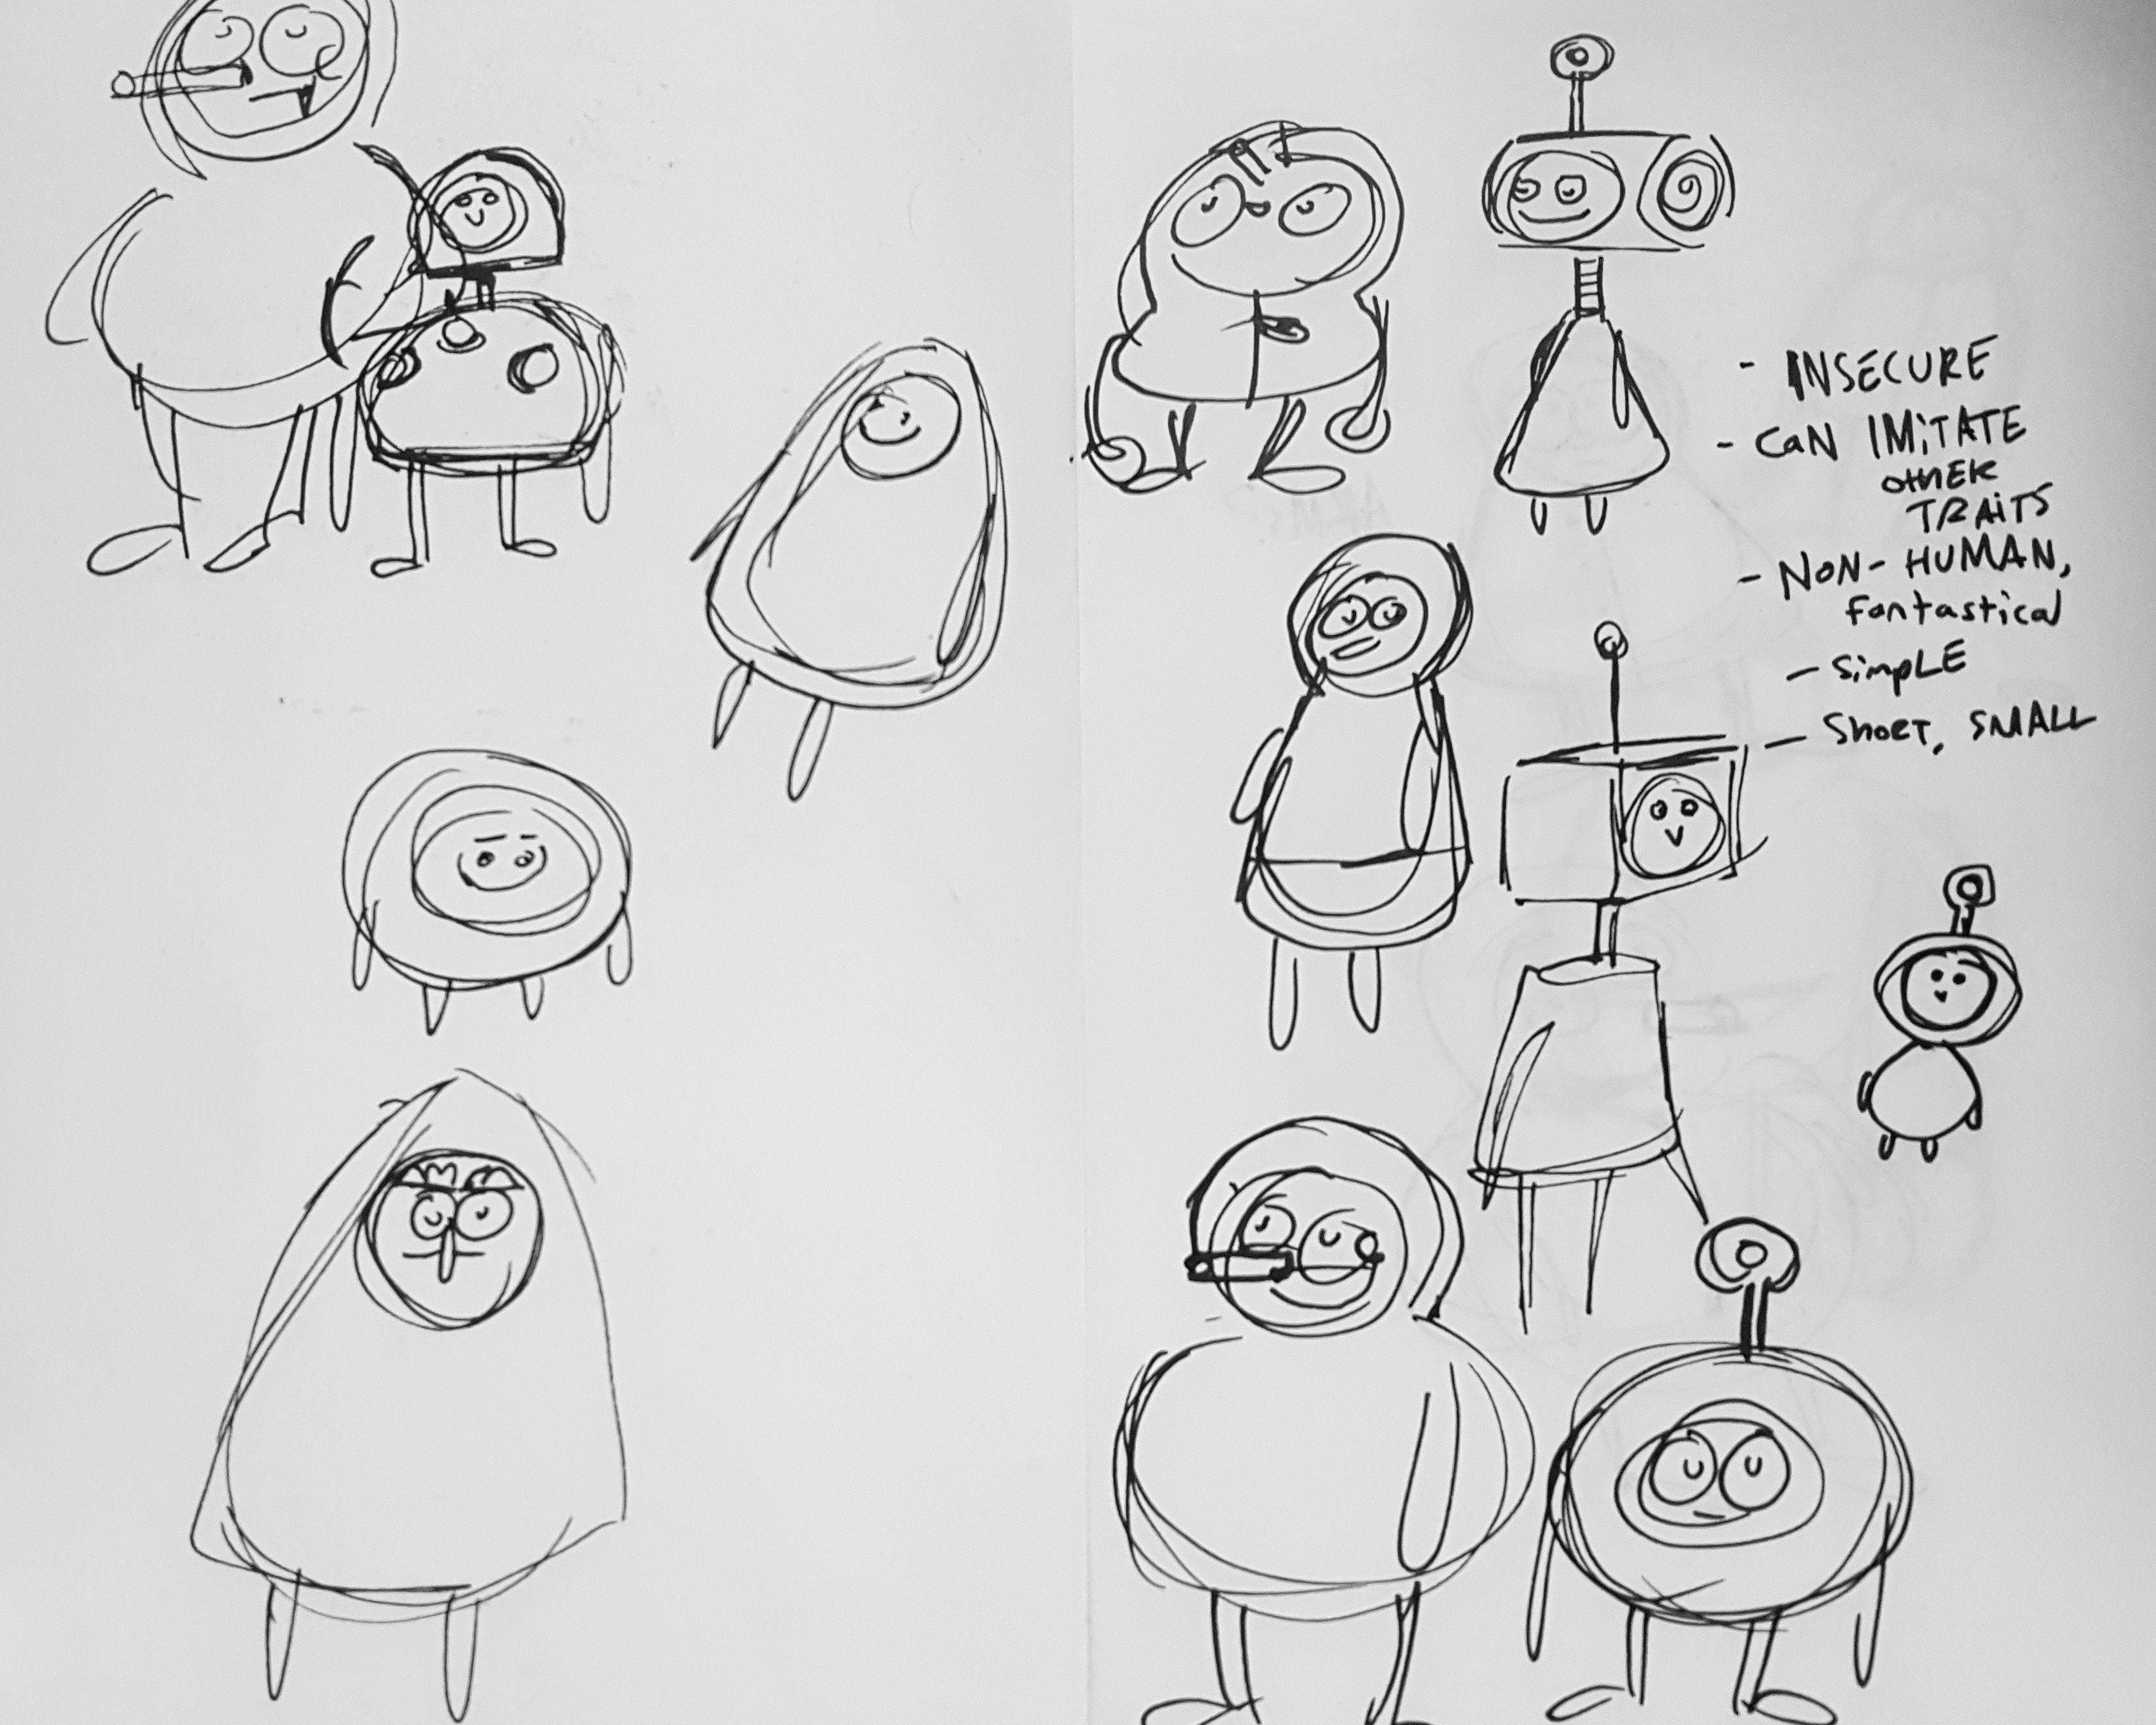 - INSECURE
- CaN IMiTATE
otHER
TRAiTS
- NON-HUMAN,
fantastical
- SimpLE
- ShoRT, SMALL